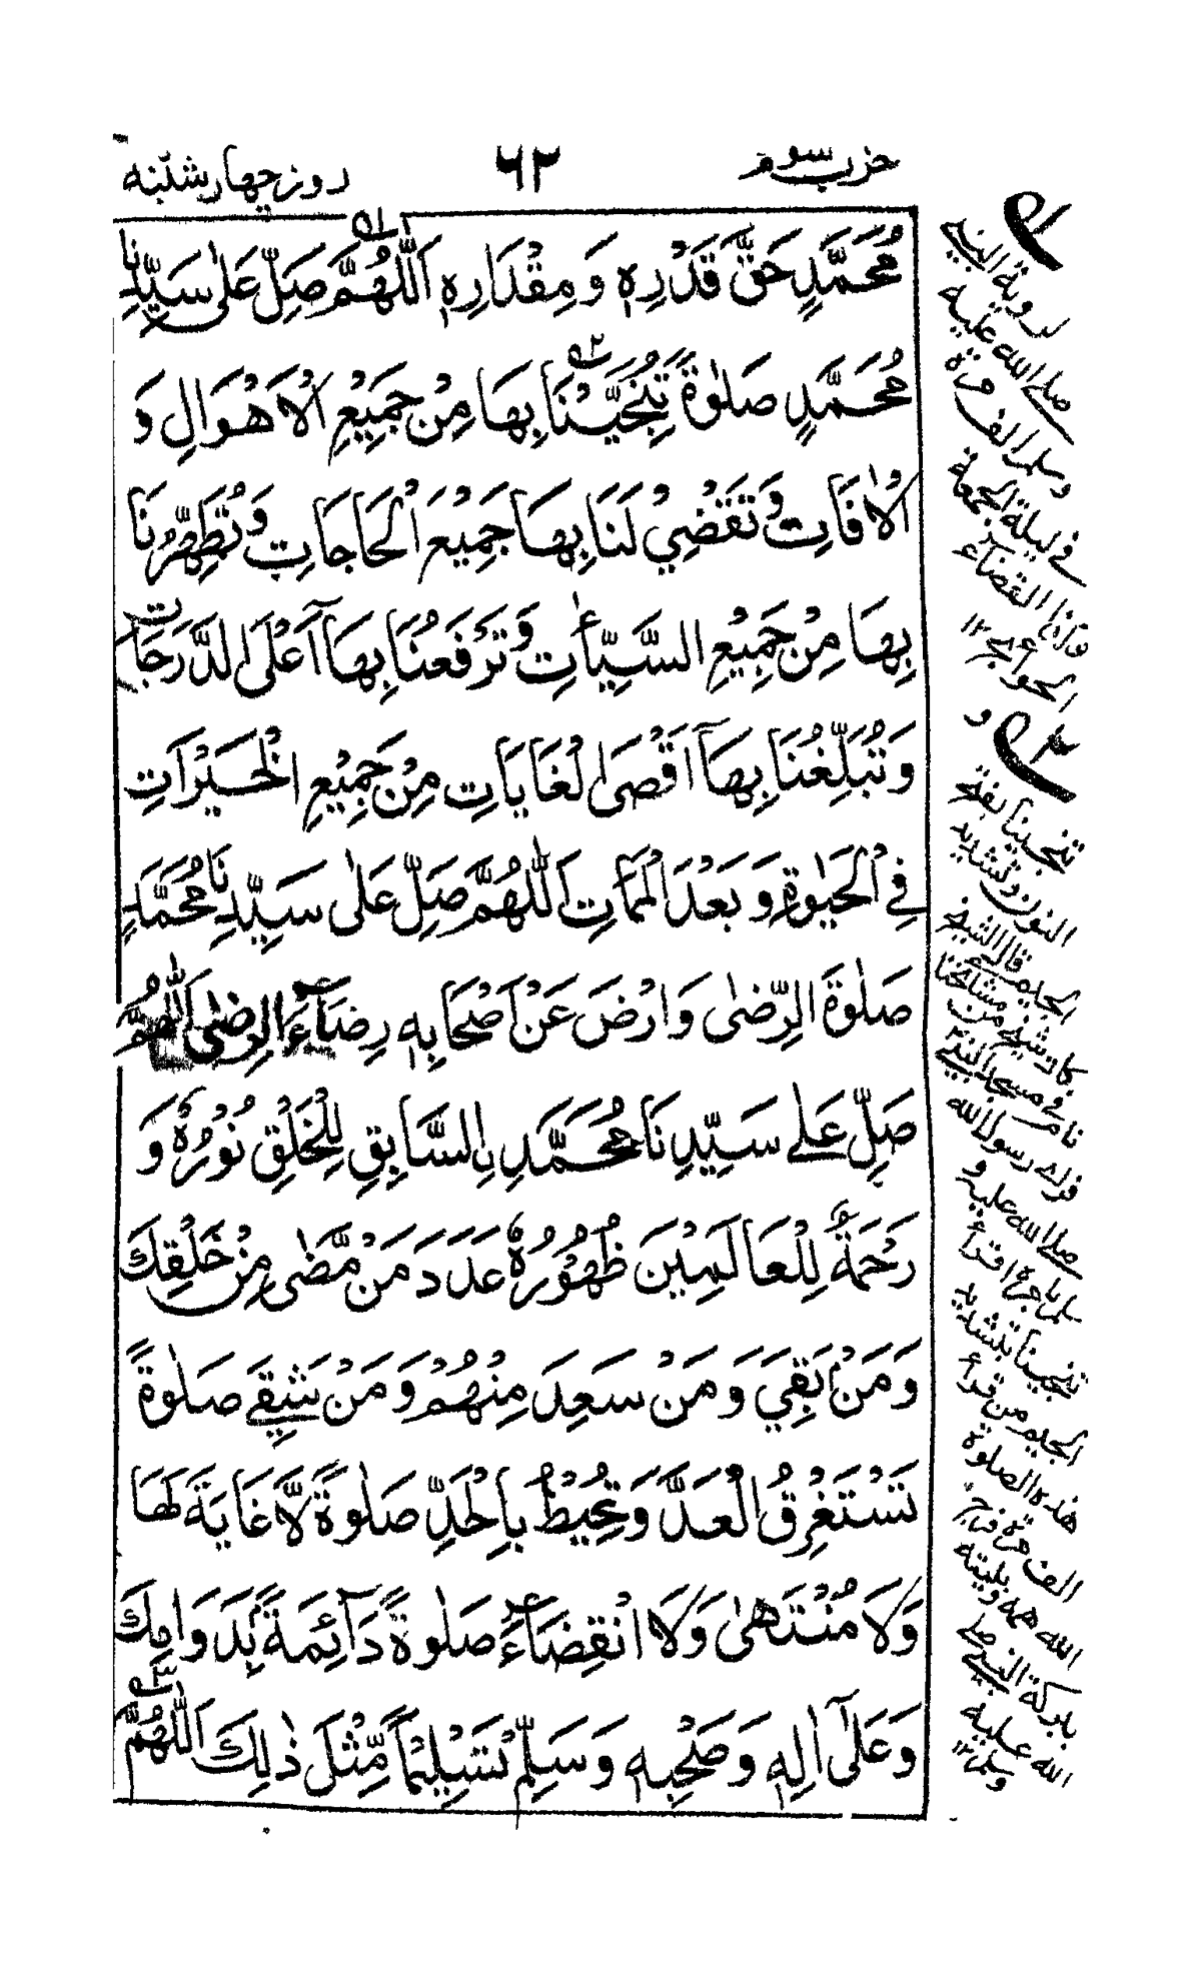 حزب سوم
٦٢
روز چهار شنبه
مُحَمَّدٍ حَقَّ قَدْرِهٖ وَمِقْدَارِهٖ اَللّٰهُمَّ صَلِّ عَلٰى سَيِّدِنَا
مُحَمَّدٍ صَلٰوةً تُنَجِّيْنَا بِهَا مِنْ جَمِيْعِ الْاَهْوَالِ وَ
الْاٰفَاتِ وَتَقْضِيْ لَنَا بِهَا جَمِيْعَ الْحَاجَاتِ وَتُطَهِّرُنَا
بِهَا مِنْ جَمِيْعِ السَّيِّاٰتِ وَتَرْفَعُنَا بِهَآ اَعْلَى الدَّرَجَاتِ
وَتُبَلِّغُنَا بِهَآ اَقْصَى الْغَايَاتِ مِنْ جَمِيْعِ الْخَيْرَاتِ
فِي الْحَيٰوةِ وَبَعْدَ الْمَمَاتِ اَللّٰهُمَّ صَلِّ عَلٰى سَيِّدِنَا مُحَمَّدٍ
صَلٰوةَ الرِّضٰى وَارْضَ عَنْ اَصْحَابِهٖ رِضَآءَ الرِّضٰى اَللّٰهُمَّ
صَلِّ عَلٰے سَيِّدِنَا مُحَمَّدِ نِالسَّابِقِ لِلْخَلْقِ نُوْرُهٗ وَ
رَحْمَةٌ لِلْعَالَمِيْنَ ظُهُوْرُهٗ عَدَدَ مَنْ مَّضٰى مِنْ خَلْقِكَ
وَمَنْ بَقِيَ وَمَنْ سَعِدَ مِنْهُمْ وَمَنْ شَقِيَ صَلٰوةً
تَسْتَغْرِقُ الْعَدَّ وَتُحِيْطُ بِالْحَدِّ صَلٰوةً لَّا غَايَةَ لَهَا
وَلَا مُنْتَهٰى وَلَا انْقِضَآءَ صَلٰوةً دَآئِمَةً بِدَوَامِكَ
وَعَلٰٓى اٰلِهٖ وَصَحْبِهٖ وَسَلِّمْ تَسْلِيْمًا مِّثْلَ ذٰلِكَ اَللّٰهُمَّ
لروية النبي
صلى الله عليه
وسلم الف مرة
في ليلة الجمعة
القضاء
الحوائج ١٢
تنجينا بفتح
النون وتشديد
الجيم قال الشيخ
من مشائخنا
في مسجد النبي
رسول الله
صلى الله عليه و
سلم
تنجينا بتشديد
الجيم من قرأ
هذه الصلوة
الف مرة فرج
الله همه وبليته
ببركة النبي صلى
الله عليه
وسلم ١٢